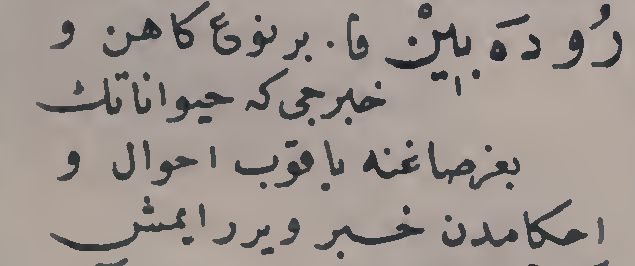 رُودَه بِينْ فا. بر نوع كاهن و
خبرجی كه حیواناتك
بغرصاغنه باقوب احوال و
احكامدن خبر ویررایمش